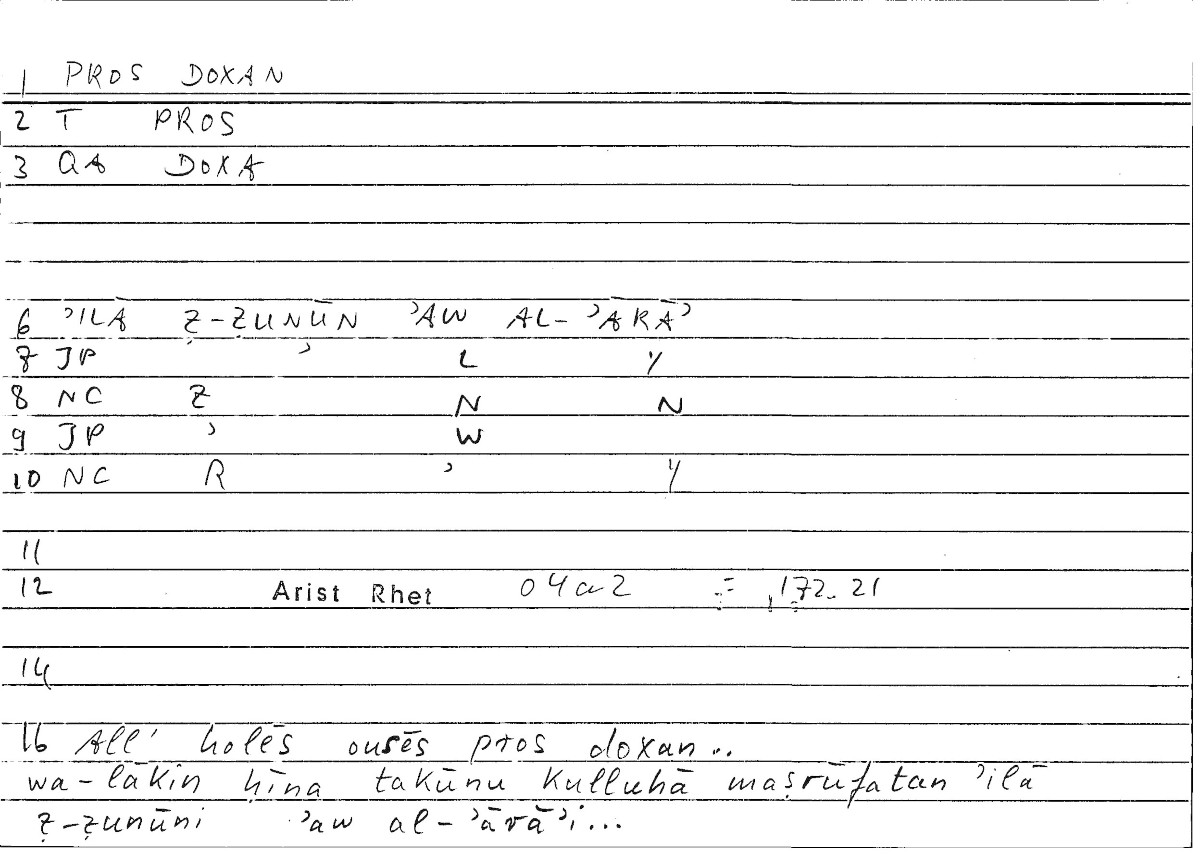 1 PROS DOXAN
2 T PROS
3 QA DOXA
6 ʾILĀ Ẓ-ẒUNŪN ʾAW AL-ʾĀRĀʾ
7 JP ʾ L Y
8 NC Ẓ N N
9 JP ʾ W
10 NC R ʾ Y
11
12 Arist Rhet 04a2 = 172.21
14
16 All' holēs ousēs pros doxan..
wa-lākin ḥīna takūnu kulluhā maṣrūfatan ʾilā
ẓ-ẓunūni ʾaw al-ʾārāʾi...